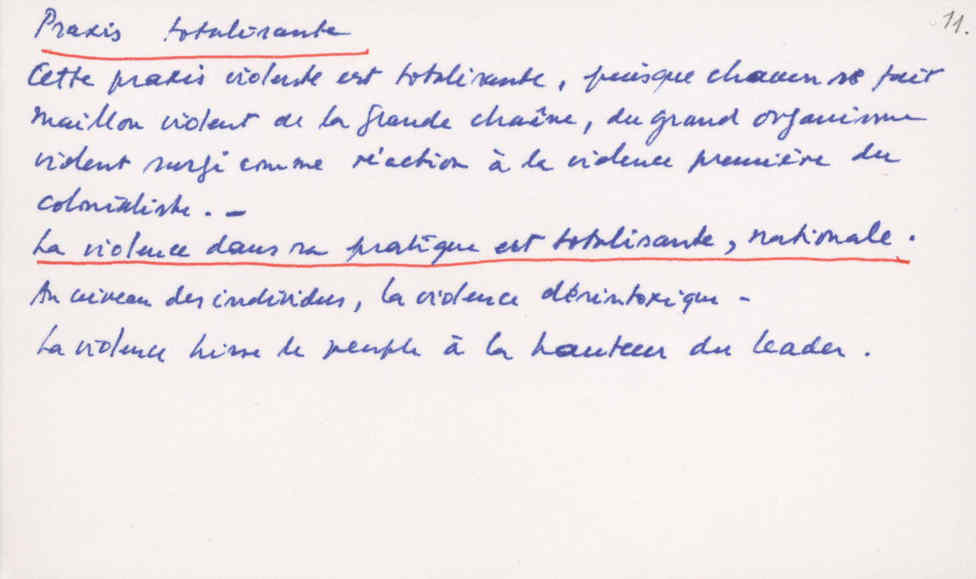 11.
Praxis totalisante
Cette praxis violente est totalisante, puisque chacun se fait
maillon violent de la grande chaîne, du grand organisme
violent surgi comme réaction à la violence première du
colonialiste. -
La violence dans sa pratique est totalisante, nationale.
Au niveau des individus, la violence désintoxique -
La violence hisse le peuple à la hauteur du leader.